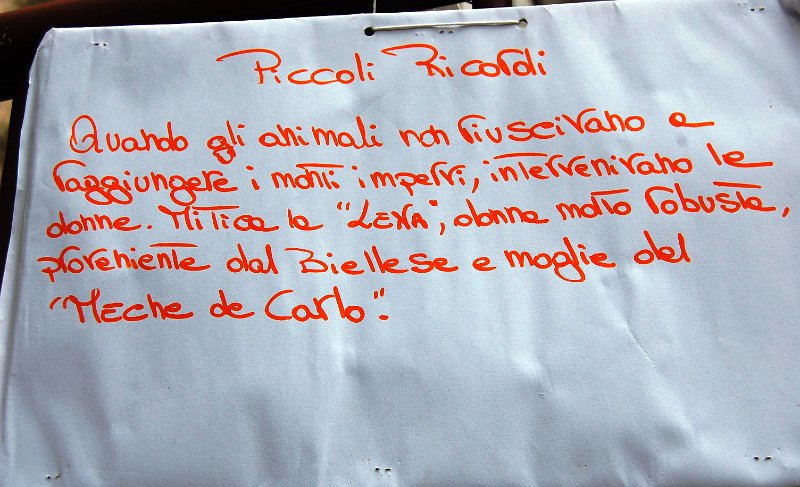 Piccoli Ricordi
Quando gli animali non riuscivano a
raggiungere i monti impervi, intervenivano le
donne. Mitica la "LENA", donna molto robusta,
proveniente dal Biellese e moglie del
"Meche de Carlo".